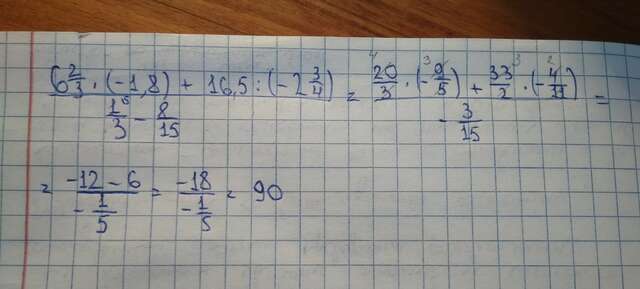 (6 2/3 · (-1,8) + 16,5 : (-2 3/4)) / (1/3 - 8/15) = (20/3 · (-9/5) + 33/2 · (-4/11)) / (-3/15) =
= (-12 - 6) / (-1/5) = -18 / (-1/5) = 90